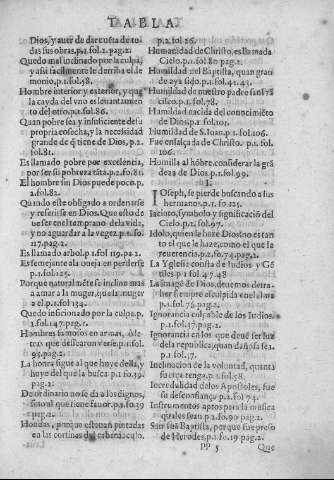 TABLA.
Dios, y auer de dar cuēta de to
das sus obras. p. 1. fol. 2. pag. 2.
Quedo mal inclinado por la culpa,
y assi facilmente le derriba el de
monio. p. 1. fol. 58.
Hombre interior y exterior, y que
la cayda del vno es leuantamien
to del otro. p. 1. fol. 86.
Quan pobre sea y insuficiente de su
propria cosecha, y la necesidad
grande de q̃ tiene de Dios. p. 1.
fol. 81.
Es llamado pobre por excelencia,
por ser su pobreza tāta. p. 2. fo. 81.
El hombre sin Dios puede poco. p.
2. fol. 82.
Quando este obligado a ordenar
se y reserirse en Dios. Que esto de
ue ser en el temprano de la vida,
y no aguardar a la vegez. p. 1. fo.
127. pag. 2.
Es llamado arbol. p. 1. fol 119. pa. 2.
Es semejante a la oueja en perderse
p. 1. fol. 125.
Porque naturalmēte se incline mas
a amar a la muger, que la muger
a el. p. 1. fol. 134.
Quedo inficionado por la culpa. p.
1. fol. 147. pag. 2.
Hombres famosos en armas, o le-
tras que descansaron
95. pag. 2.
La honra sigue al que huye della, y
huye del que la busca p. 1. fo. 39.
pag. 2.
De ordinario no se da a los dignos,
sino al que tiene fauor. p. 3. fo. 39
pag. 2.
Hondas, porque estauan pintadas
en las cortinas del tabernaculo.
p. 2. fo. 26.
Humanidad de Christo, es llamada
Cielo. p. 1. fol. 80. pag. 2.
Humildad del Baptista, quan gran
de aya sido. p. 1. fol. 41. pag. 2.
Humildad de nuestro padre san Frā
cisco. p. 1. fol. 78.
Humildad nacida del conocimiēto
de Dios. p. 1. fo. 105.
Humildad de S. Ioan. p. 1. fol. 106.
Fue ensalça da de Christo. p. 1. fol.
106.
Humilla al hōbre, considerar la grā
deza de Dios. p. 1. fol. 99.
I.
IOseph, se pierde buscando a sus
hermanos. p. 1. fo. 125.
Iacinto, symbolo y significació del
Cielo. p. 1. fol. 97.
Idolo, que es le haze Dios no es tan
to el que le haze, como el que le
reuerencia. p. 2. fo. 74. pag. 2.
La Yglesia consta de Iudios y Gē
tiles p. 1 fol. 47. 48
La image de Dios, deuemos detra-
her siempre esculpida en el alma
p. 1. fol. 76. pag. 2.
Ignorancia culpable de los Iudios.
p. 1. fol. 17. pag. 2.
Ignorancia en los que deuē ser luz
de la republica, quan dañosa sea.
p. 1. fol. 17.
Inclinacion de la voluntad, quanta
fuerça tenga. p. 1. fol. 58.
Incredulidad de los Apostoles, fue
su desconfiança p. 2. fol. 74.
Instrumentos aptos para la musica
quales sean p. 2. fo. 90 pag. 2.
San Iuā Baptista, porque fue preso
de Herodes. p. 1. fo. 19 pag. 2.
pp 5
Que